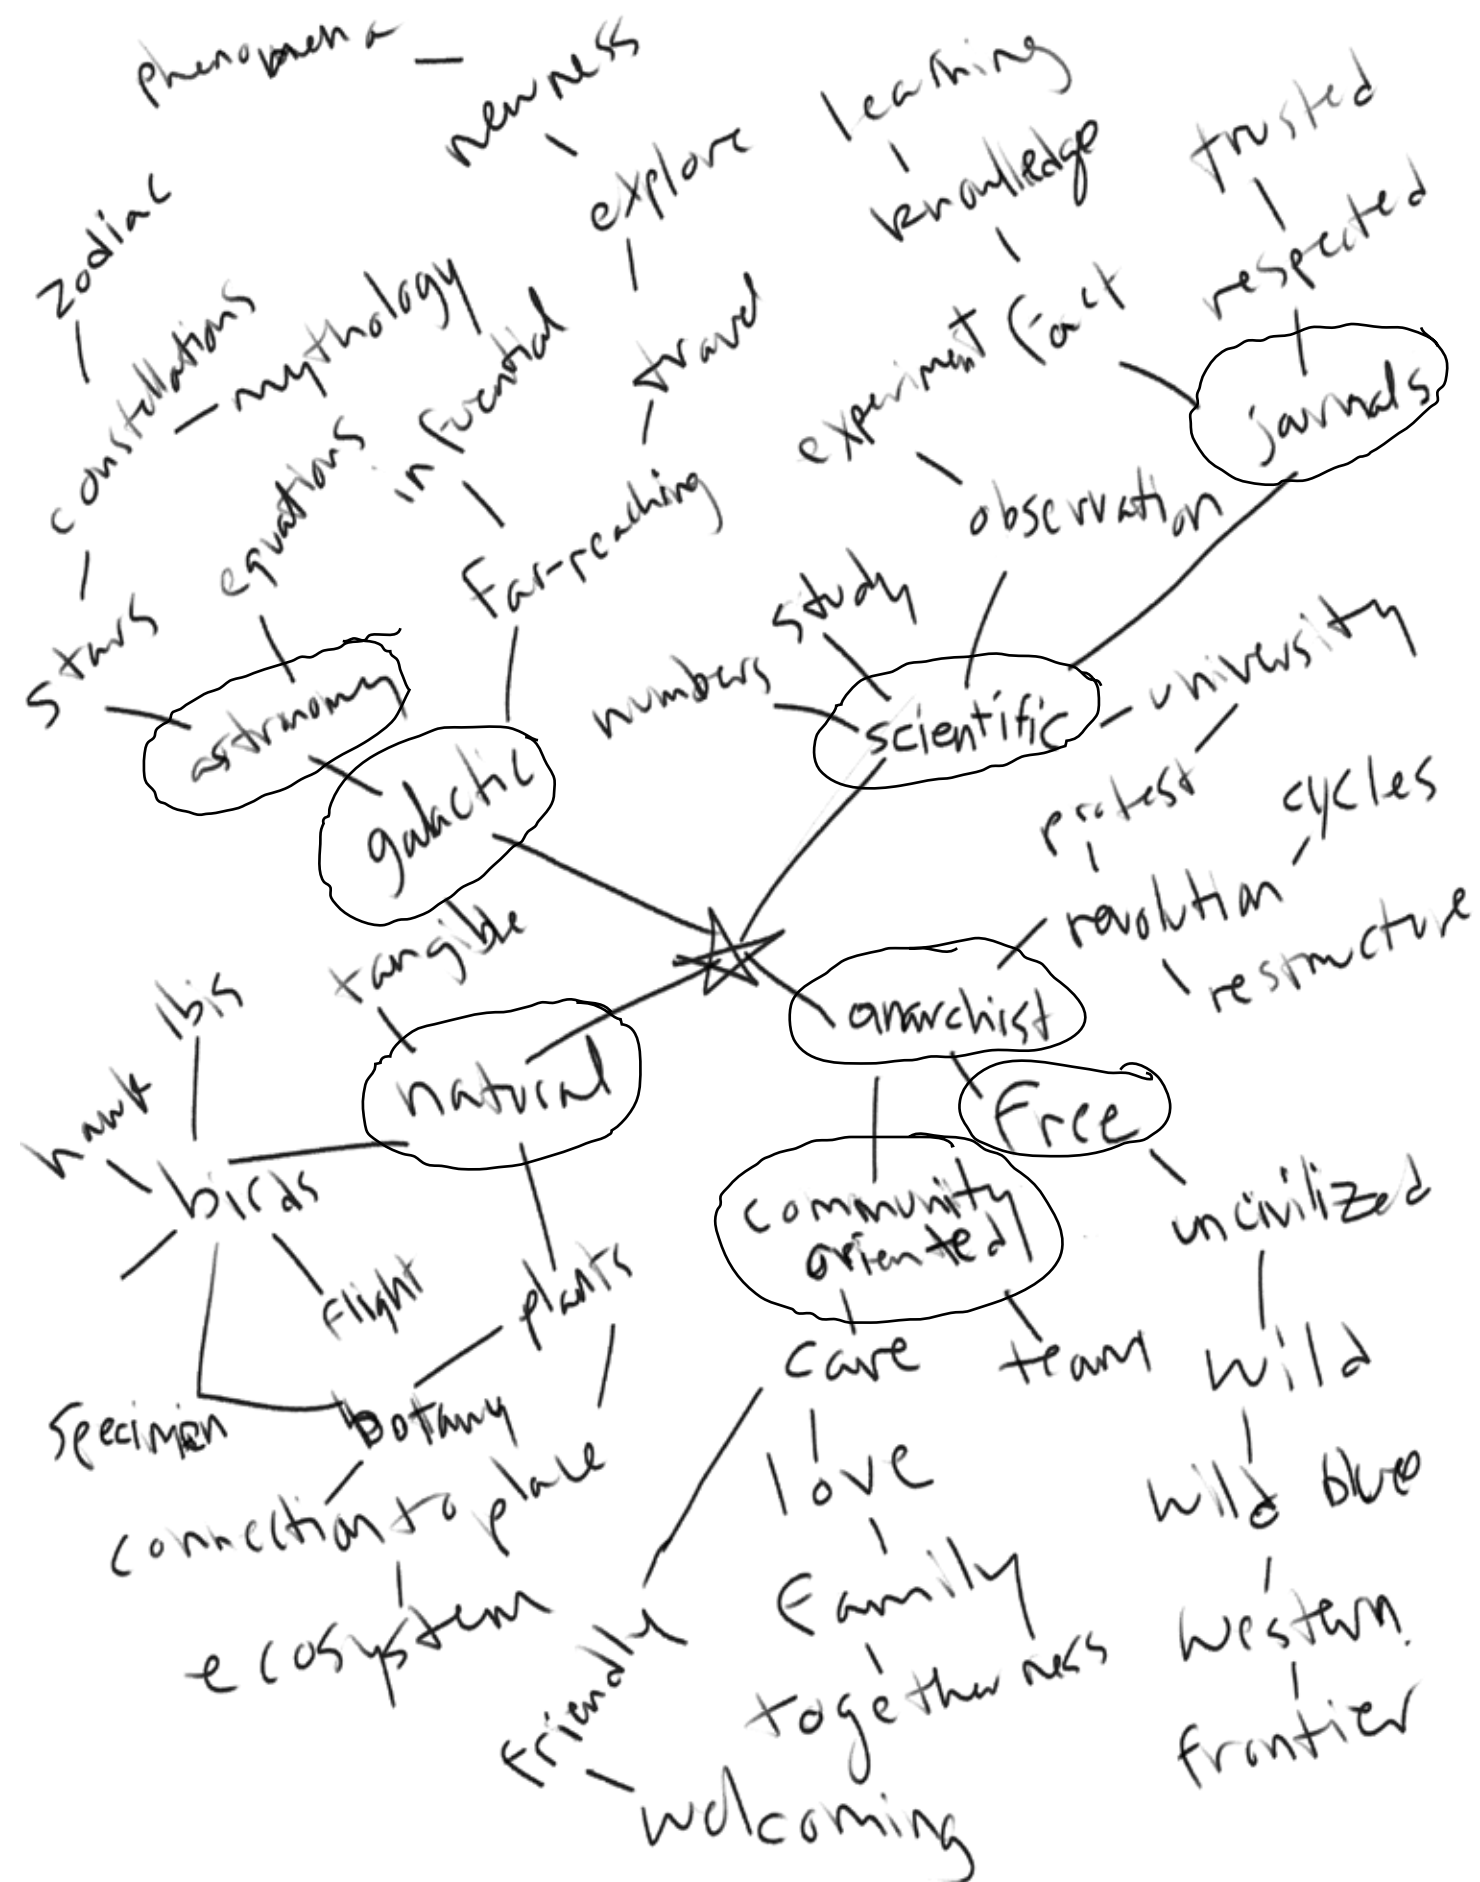 phenomena
newness
explore
learning
knowledge
trusted
respected
zodiac
constellations
mythology
influential
travel
experiment
fact
journals
equations
far-reaching
observation
stars
study
numbers
scientific
university
astronomy
galactic
protest
cycles
revolution
restructure
tangible
anarchist
ibis
natural
free
hawk
birds
community
oriented
uncivilized
flight
plants
care
team
wild
specimen
botany
love
wild blue
connection to place
family
western
ecosystem
friendly
togetherness
frontier
welcoming